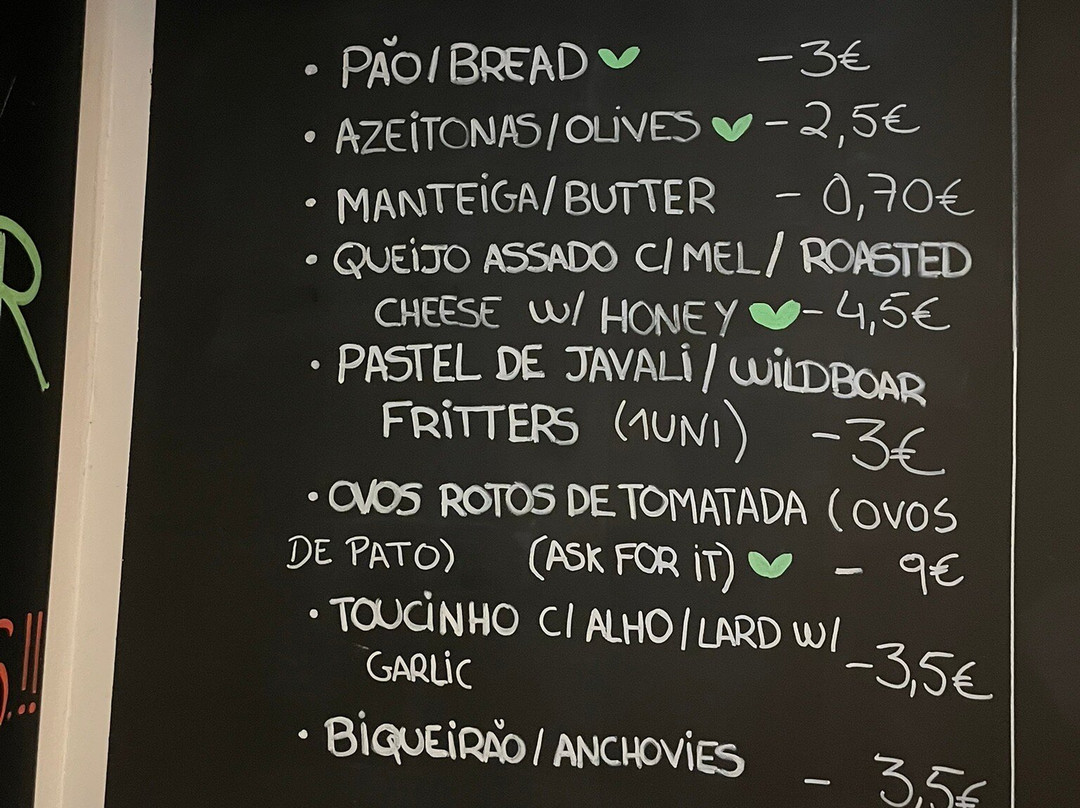 • PÃO/BREAD - 3€
• AZEITONAS/OLIVES - 2,5€
• MANTEIGA/BUTTER - 0,70€
• QUEIJO ASSADO C/ MEL / ROASTED
CHEESE W/ HONEY - 4,5€
• PASTEL DE JAVALI / WILDBOAR
FRITTERS (1UNI) - 3€
• OVOS ROTOS DE TOMATADA (OVOS
DE PATO) (ASK FOR IT) - 9€
• TOUCINHO C/ ALHO / LARD W/
GARLIC - 3,5€
• BIQUEIRÃO / ANCHOVIES
- 3,5€